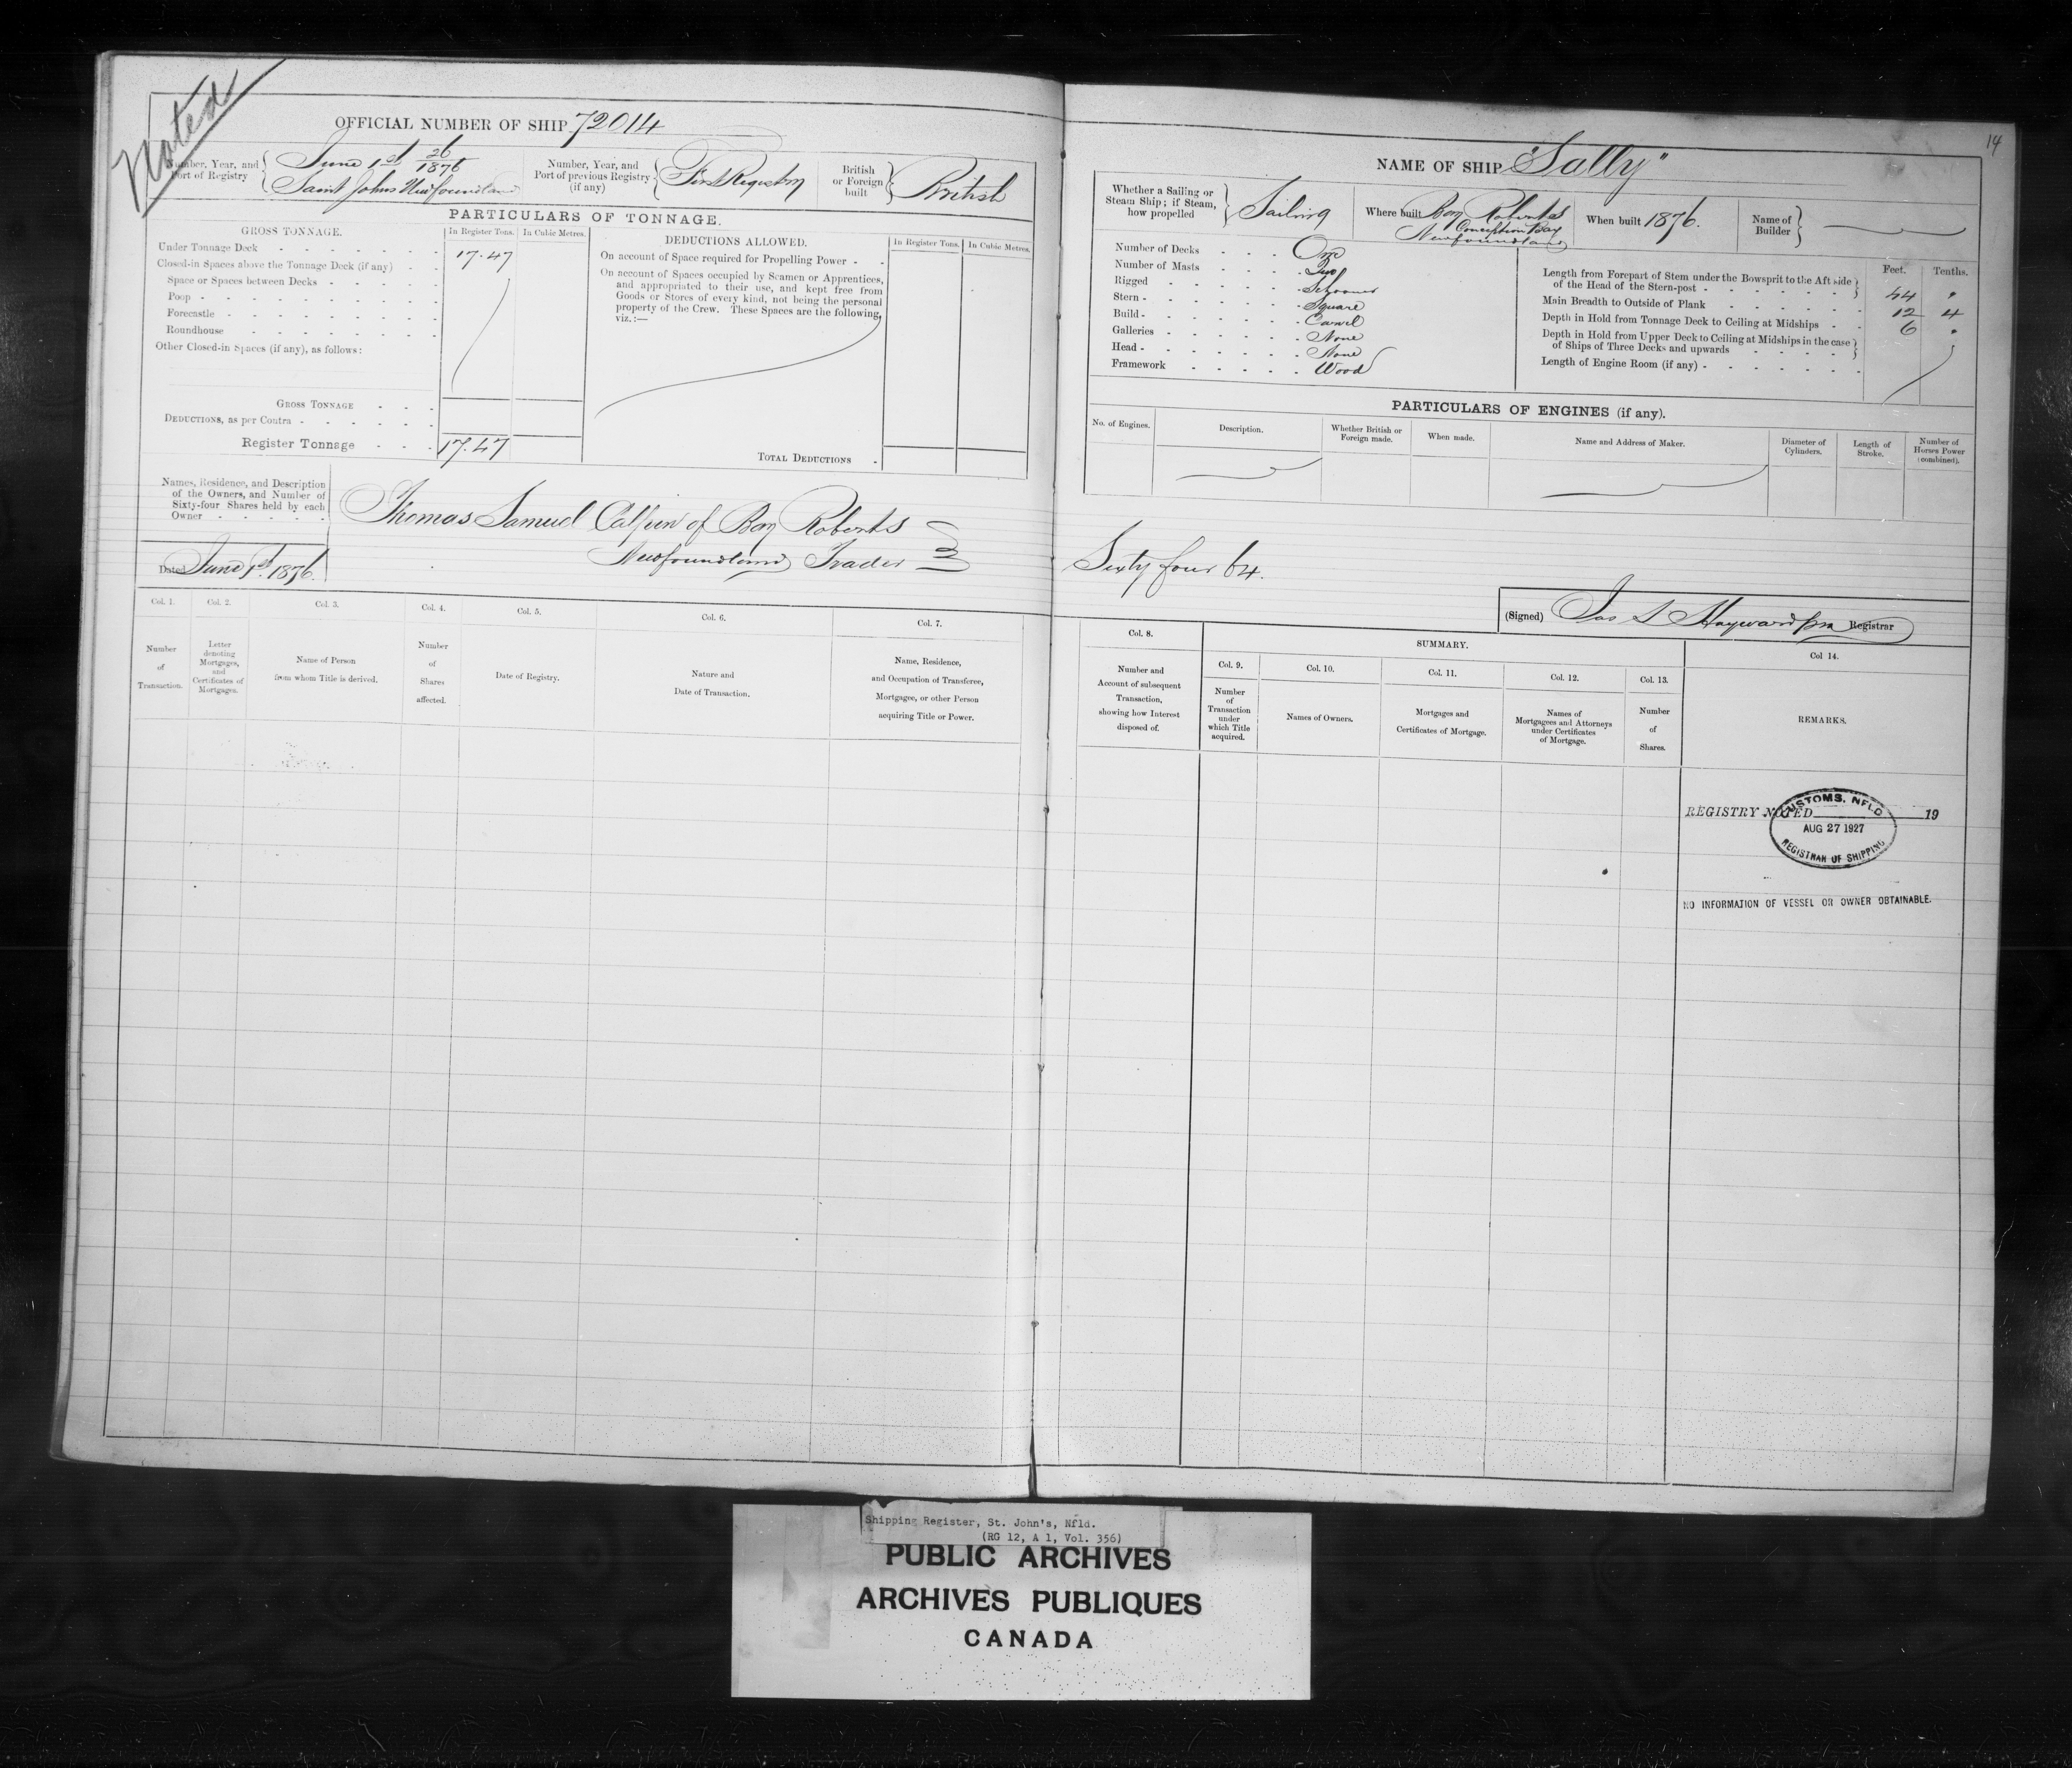 Noted
OFFICIAL NUMBER OF SHIP 72014
Number, Year, and Port of Registry
June 1st 26/1876
Saint Johns Newfoundland
Number, Year, and Port of previous Registry (if any)
First Registry
British or Foreign built
British
PARTICULARS OF TONNAGE.
GROSS TONNAGE.
In Register Tons.
In Cubic Metres.
Under Tonnage Deck 17.47
Closed-in Spaces above the Tonnage Deck (if any)
Space or Spaces between Decks
Poop
Forecastle
Roundhouse
Other Closed-in Spaces (if any), as follows:
GROSS TONNAGE
DEDUCTIONS, as per Contra
Register Tonnage 17.47
DEDUCTIONS ALLOWED.
In Register Tons.
In Cubic Metres.
On account of Space required for Propelling Power
On account of Spaces occupied by Seamen or Apprentices,
and appropriated to their use, and kept free from
Goods or Stores of every kind, not being the personal
property of the Crew. These Spaces are the following,
viz.:—
TOTAL DEDUCTIONS
Names, Residence, and Description
of the Owners, and Number of
Sixty-four Shares held by each
Owner
Thomas Samuel of Bay Roberts
Newfoundland Trader
Dated June 1st 1876.
Col. 1.
Number of Transaction.
Col. 2.
Letter denoting Mortgages, and Certificates of Mortgages.
Col. 3.
Name of Person from whom Title is derived.
Col. 4.
Number of Shares affected.
Col. 5.
Date of Registry.
Col. 6.
Nature and Date of Transaction.
Col. 7.
Name, Residence, and Occupation of Transferee, Mortgagee, or other Person acquiring Title or Power.
14
NAME OF SHIP "Sally"
Whether a Sailing or Steam Ship; if Steam, how propelled
Sailing
Where built Bay Roberts
Conception Bay
Newfoundland
When built 1876.
Name of Builder
Number of Decks One
Number of Masts Two
Rigged Schooner
Stern Square
Build Carvel
Galleries None
Head None
Framework Wood
Feet. Tenths.
Length from Forepart of Stem under the Bowsprit to the Aft side of the Head of the Stern-post 44 "
Main Breadth to Outside of Plank 12 4
Depth in Hold from Tonnage Deck to Ceiling at Midships 6 "
Depth in Hold from Upper Deck to Ceiling at Midships in the case of Ships of Three Decks and upwards
Length of Engine Room (if any)
PARTICULARS OF ENGINES (if any).
No. of Engines.
Description.
Whether British or Foreign made.
When made.
Name and Address of Maker.
Diameter of Cylinders.
Length of Stroke.
Number of Horses Power (combined).
Sixty four 64.
(Signed) Jas S Hayward Registrar
Col. 8.
Number and Account of subsequent Transaction, showing how Interest disposed of.
SUMMARY.
Col. 9.
Number of Transaction under which Title acquired.
Col. 10.
Names of Owners.
Col. 11.
Mortgages and Certificates of Mortgage.
Col. 12.
Names of Mortgagees and Attorneys under Certificates of Mortgage.
Col. 13.
Number of Shares.
Col 14.
REMARKS.
REGISTRY NOTED 19
CUSTOMS, NFLD
AUG 27 1927
REGISTRAR OF SHIPPING
NO INFORMATION OF VESSEL OR OWNER OBTAINABLE.
Shipping Register, St. John's, Nfld.
(RG 12, A 1, Vol. 356)
PUBLIC ARCHIVES
ARCHIVES PUBLIQUES
CANADA